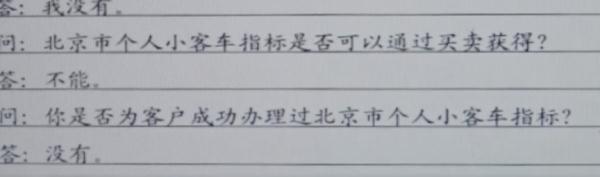 答：我没有。
问：北京市个人小客车指标是否可以通过买卖获得？
答：不能。
问：你是否为客户成功办理过北京市个人小客车指标？
答：没有。